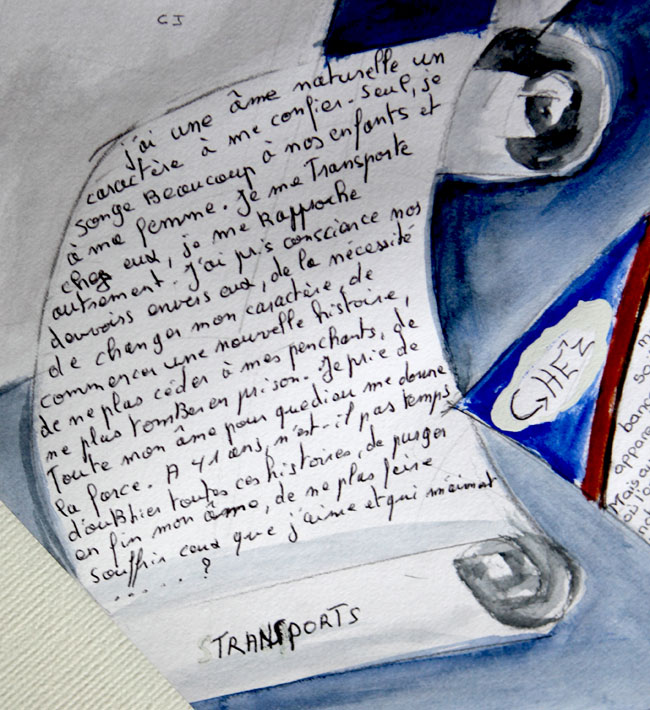 CJ
j'ai une âme naturelle un
caractère à me confier. Seul, je
songe Beaucoup à nos enfants et
à ma femme. Je me Transporte
chez eux, je me Rapproche
autrement. J'ai pris conscience mes
devoirs envers eux, de la nécessité
de changer mon caractère, de
commencer une nouvelle histoire,
de ne plus céder à mes penchants, de
ne plus tomber en prison. Je prie de
Toute mon âme pour que dieu me donne
la force. A 41 ans, n'est-il pas temps
d'ouBlier toutes ces histoires, de purger
en fin mon âme, de ne plus faire
souffrir ceux que j'aime et qui m'aiment
...... ?
TRANSPORTS
CHEZ
m
so
banc
appare
Mais au
où l'o